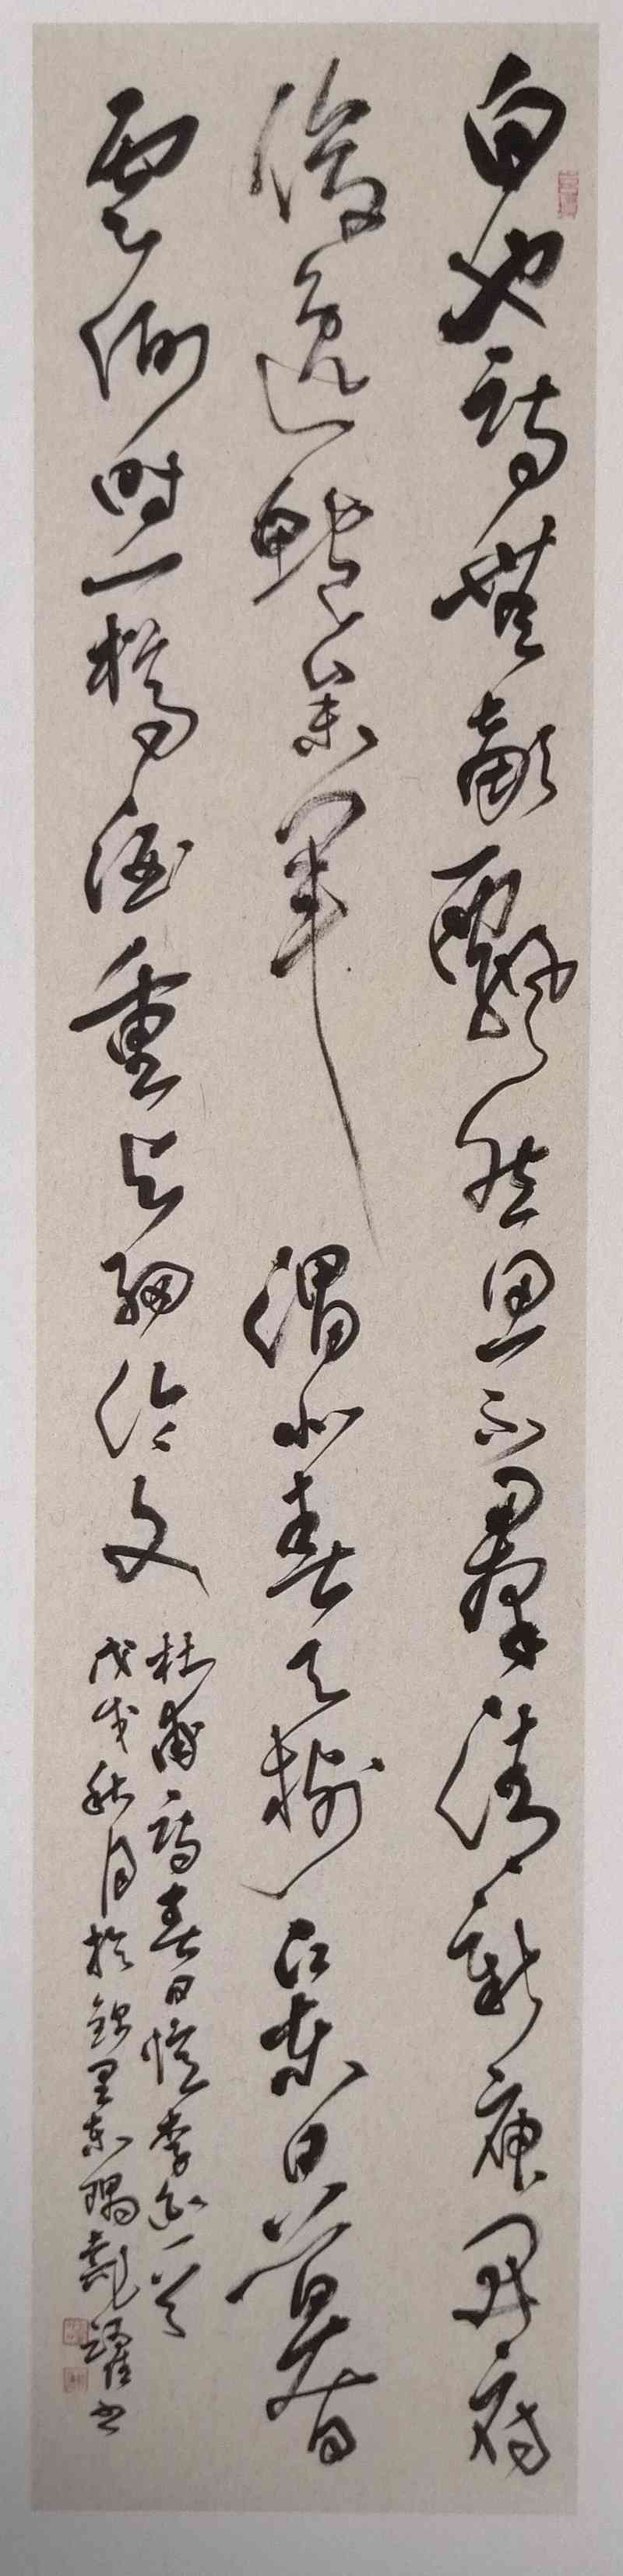 白也詩無敵飄然思不羣清新庾開府
俊逸鮑參軍渭北春天樹江東日暮
雲何時一樽酒重與細論文
杜甫詩春日憶李白一首
戊戌秋月於錦里東隅龍躍書